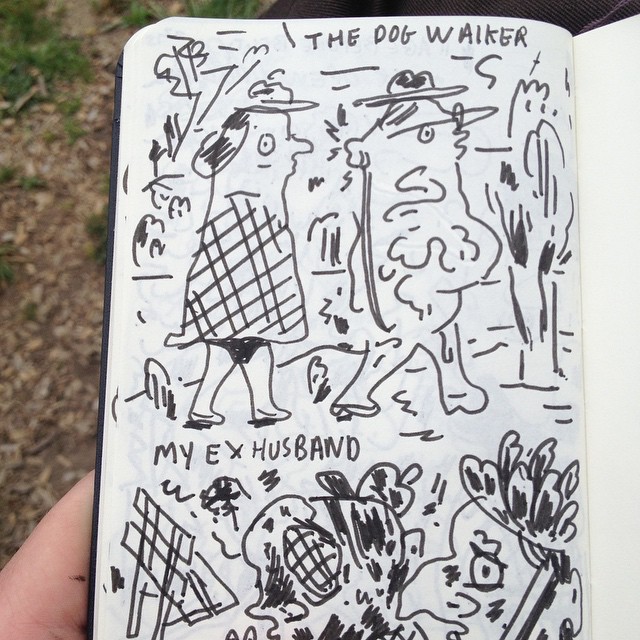 THE DOG WALKER
MY EX HUSBAND